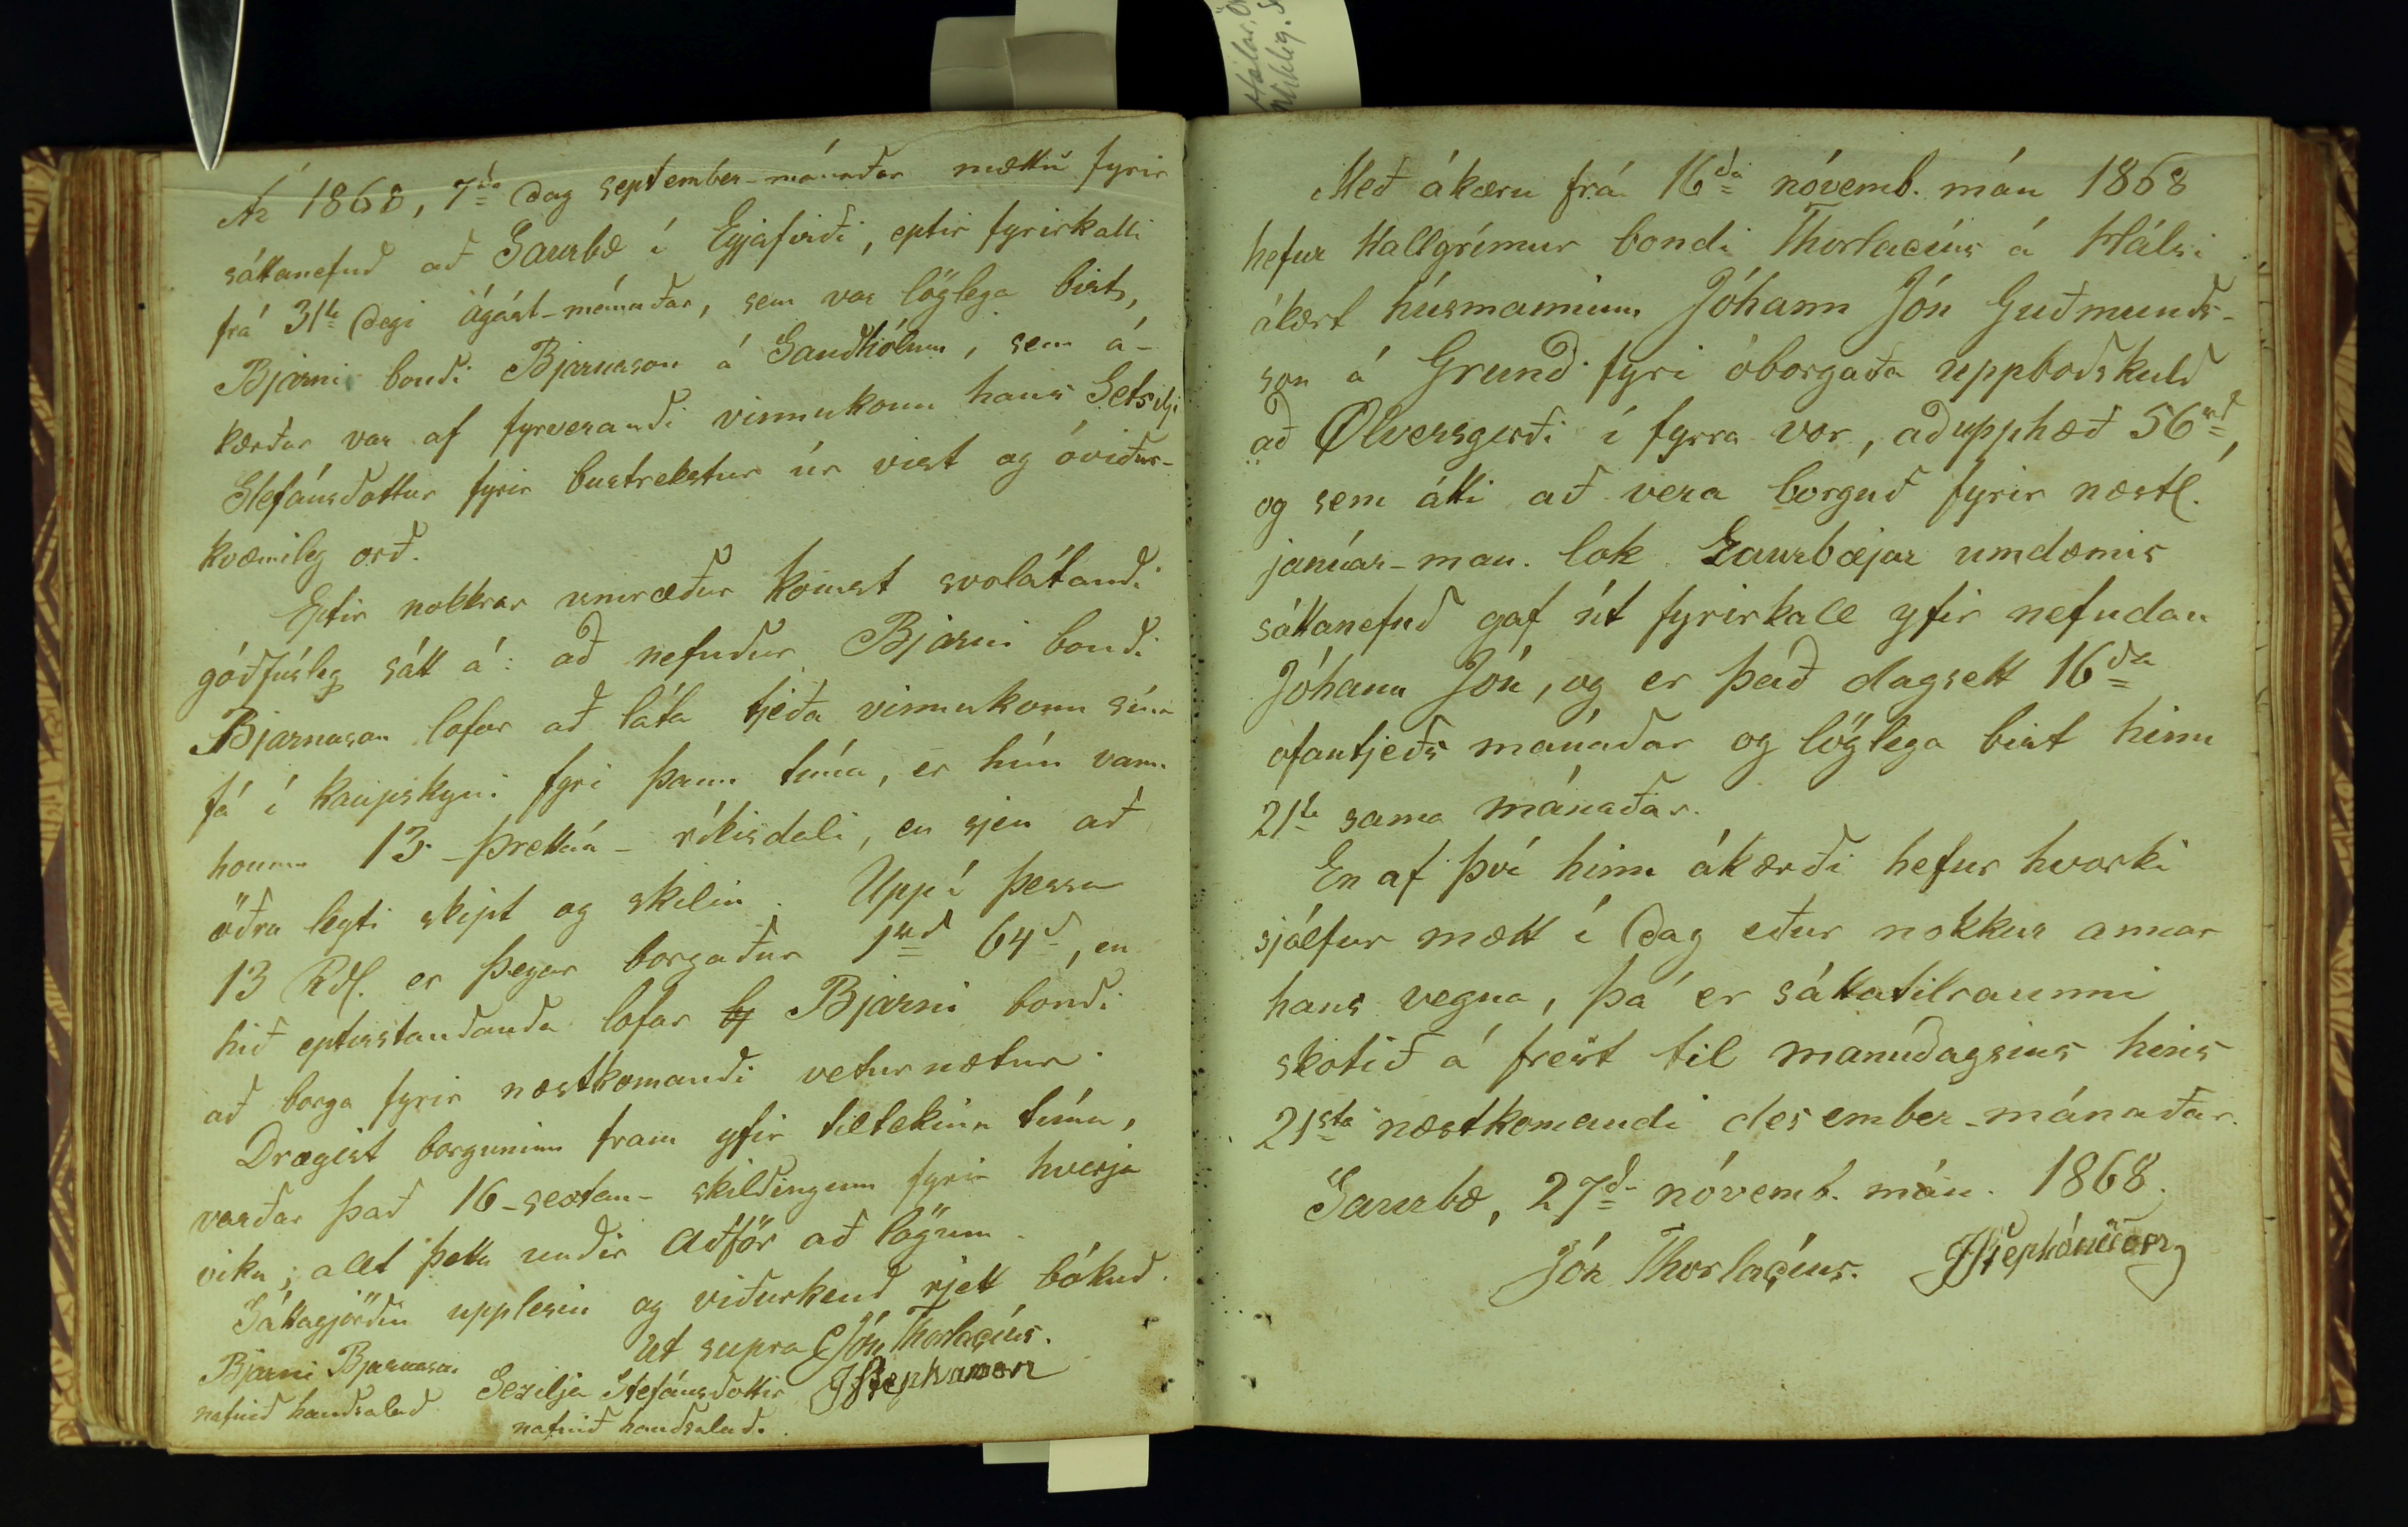 Ár 1868, 7da dag september-mánaðar mættu fyrir
sáttanefnd að Saurbæ í Eyjafirði, eptir fyrirkalli
frá 31ta degi ágúst-mánaðar, sem var löglega birt,
Bjarni bondi Bjarnason á Sandhólum, sem á-
kærður var af fyrverandi vinnukonu hans Setsilju
Stefánsdottur fyrir burtrekstur úr vist og óviður-
kvæmileg orð.
Eptir nokkrar umræður komst svolátandi
góðfúsleg sátt á: að nefndur Bjarni bondi
Bjarnason lofar að láta tjeða vinnukonu sína
fá í kaupskyni fyri þann tíma, er hún vann
honum 13 - þrettán - ríkisdali, en sjeu að
öðru leyti skipt og skilin. Uppí þessa
13 Rdl. er þegar borgaður 1rd 64s, en
hið eptirstandanda lofar Bjarni bondi
að borga fyrir næstkomandi veturnætur.
Dragist borguninn fram yfir tiltekinn tíma,
varðar það 16-sextan- skildingum fyrir hverja
viku; allt þetta undir aðför að lögum.
Sáttagjörðin upplesin og viðurkend rjett bókuð.
Ut supra Jón Thorlacíus.
Bjarni Bjarnason Sezilja Stefánsdottir JStephansson
nafnið handsalað nafnið handsalað.
Hálsi
Með ákæru frá 16da nóvemb. mán 1868
hefur Hallgrímur bondi Thorlacíus á Hálsi
ákært húsmanninn Jóhann Jón Guðmunds-
son á Grund fyri óborgaða uppboðskuld
að Ölversgerði í fyrra vor, að upphæð 56rd,
og sem átti að vera borguð fyrir næstl.
janúar-man. lok. Saurbæjar umdæmis
sáttanefnd gaf út fyrirkall yfir nefndan
Jóhann Jón, og er það dagsett 16da
ofantjeðs mánaðar og löglega birt hinn
21ta sama mánaðar.
En af því hinn ákærði hefur hvorki
sjálfur mætt í dag eður nokkur annar
hans vegna, þá er sáttatilrauninni
skotið á frest til manudagsins hins
21sta næstkomandi desember-mánaðar.
Saurbæ, 27da nóvemb. mán. 1868.
Jón Thorlacíus. JStephánsson